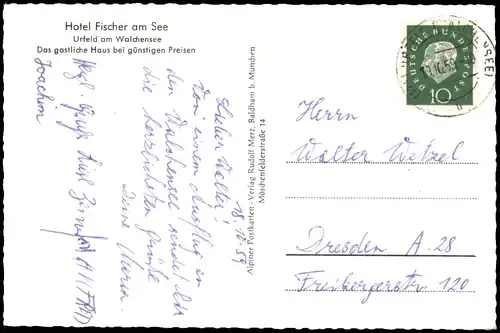 Hotel Fischer am See
Urfeld am Walchensee
Das gastliche Haus bei günstigen Preisen
18.10.59
Lieber Walter!
Von einem Ausflug an
den Walchensee sendet Dir
die herzlichsten Grüße
Deine
Herzl. Grüße
Joachim
Alpiner Postkarten-Verlag Rudolf Merz, Baldham b. München
Möschenfelderstraße 14
DEUTSCHE BUNDESPOST
10
Herrn
Walter Wetzel
Dresden A. 28
Freibergerstr. 120